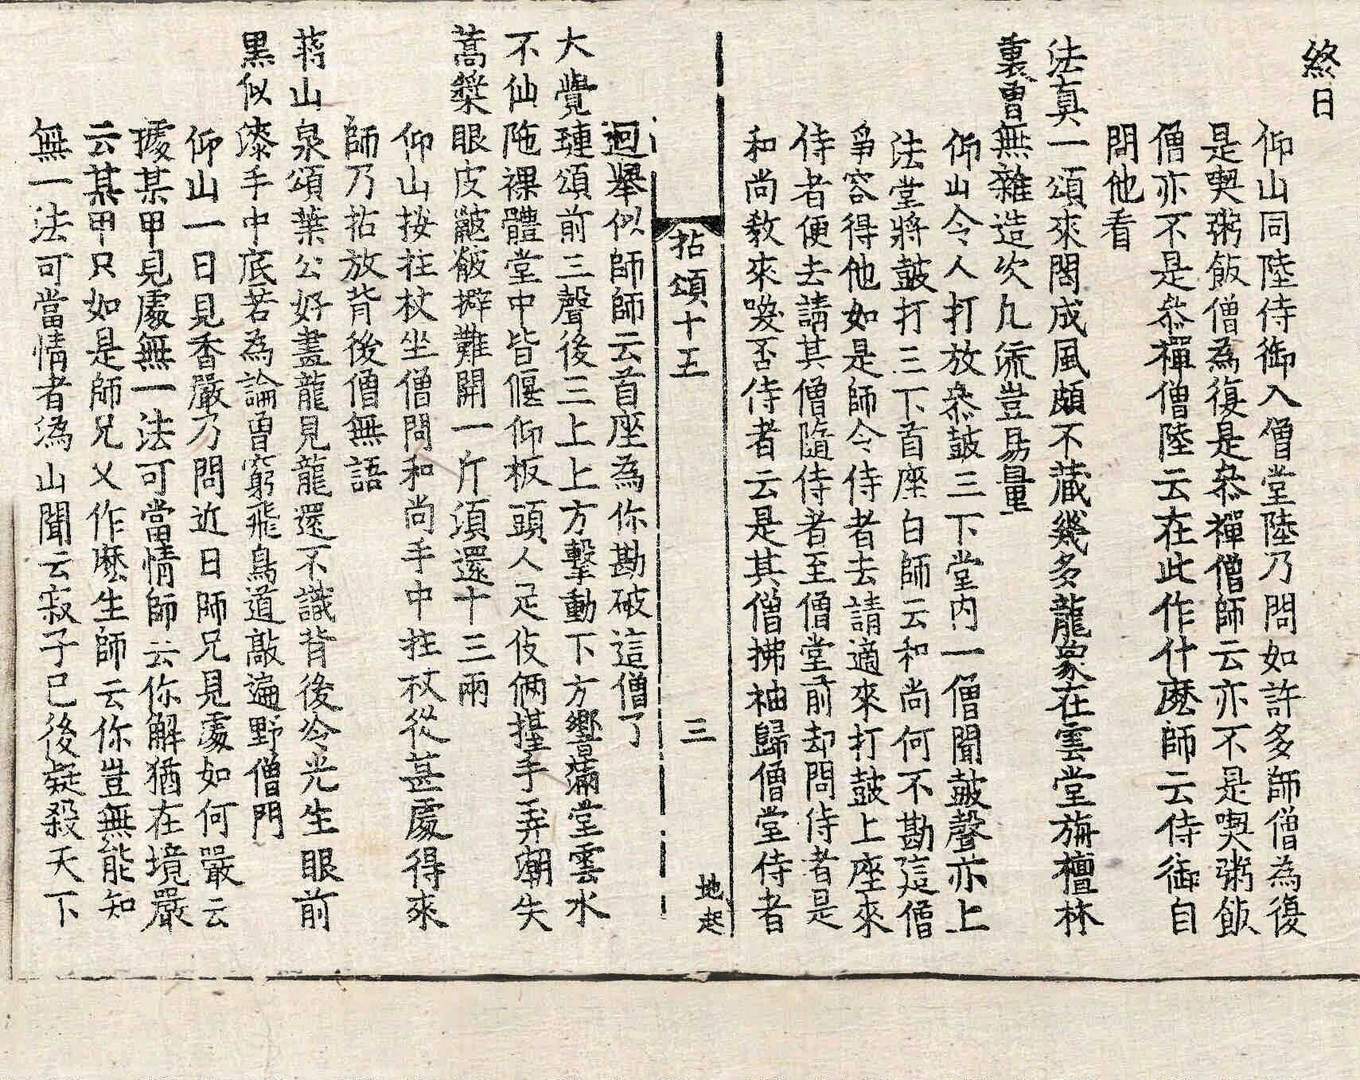 終日
仰山同陸侍御入僧堂陸乃問如許多師僧為復
是喫粥飯僧為復是叅禪僧師云亦不是喫粥飯
僧亦不是叅禪僧陸云在此作什麽師云侍御自
問他看
法真一頌來閤成風頗不藏幾多龍象在雲堂旃檀林
裏曽無雜造次凢流豈易量
仰山令人打放叅鼓三下堂內一僧聞皷聲亦上
法堂將鼓打三下首座白師云和尚何不勘這僧
爭容得他如是師令侍者去請適來打鼓上座來
侍者便去請其僧隨侍者至僧堂前却問侍者是
和尚教來喚否侍者云是其僧拂袖歸僧堂侍者
拈頌十五 三 地起
迴舉似師師云首座為你勘破這僧了
大覺璉頌前三聲後三上上方擊動下方響滿堂雲水
不仙陁裸體堂中皆偃仰板頭人足伎倆擡手弄潮失
蒿槳眼皮𪖙皺擗難開一斤須還十三兩
仰山按拄杖坐僧問和尚手中拄杖從甚處得來
師乃拈放背後僧無語
蔣山泉頌葉公好畫龍見龍還不識背後令光生眼前
黒似漆手中底若為論曽窮飛鳥道敲遍野僧門
仰山一日見香嚴乃問近日師兄見處如何嚴云
㨿某甲見處無一法可當情師云你解猶在境嚴
云某甲只如是師兄又作麽生師云你豈無能知
無一法可當情者溈山聞云寂子已後疑殺天下